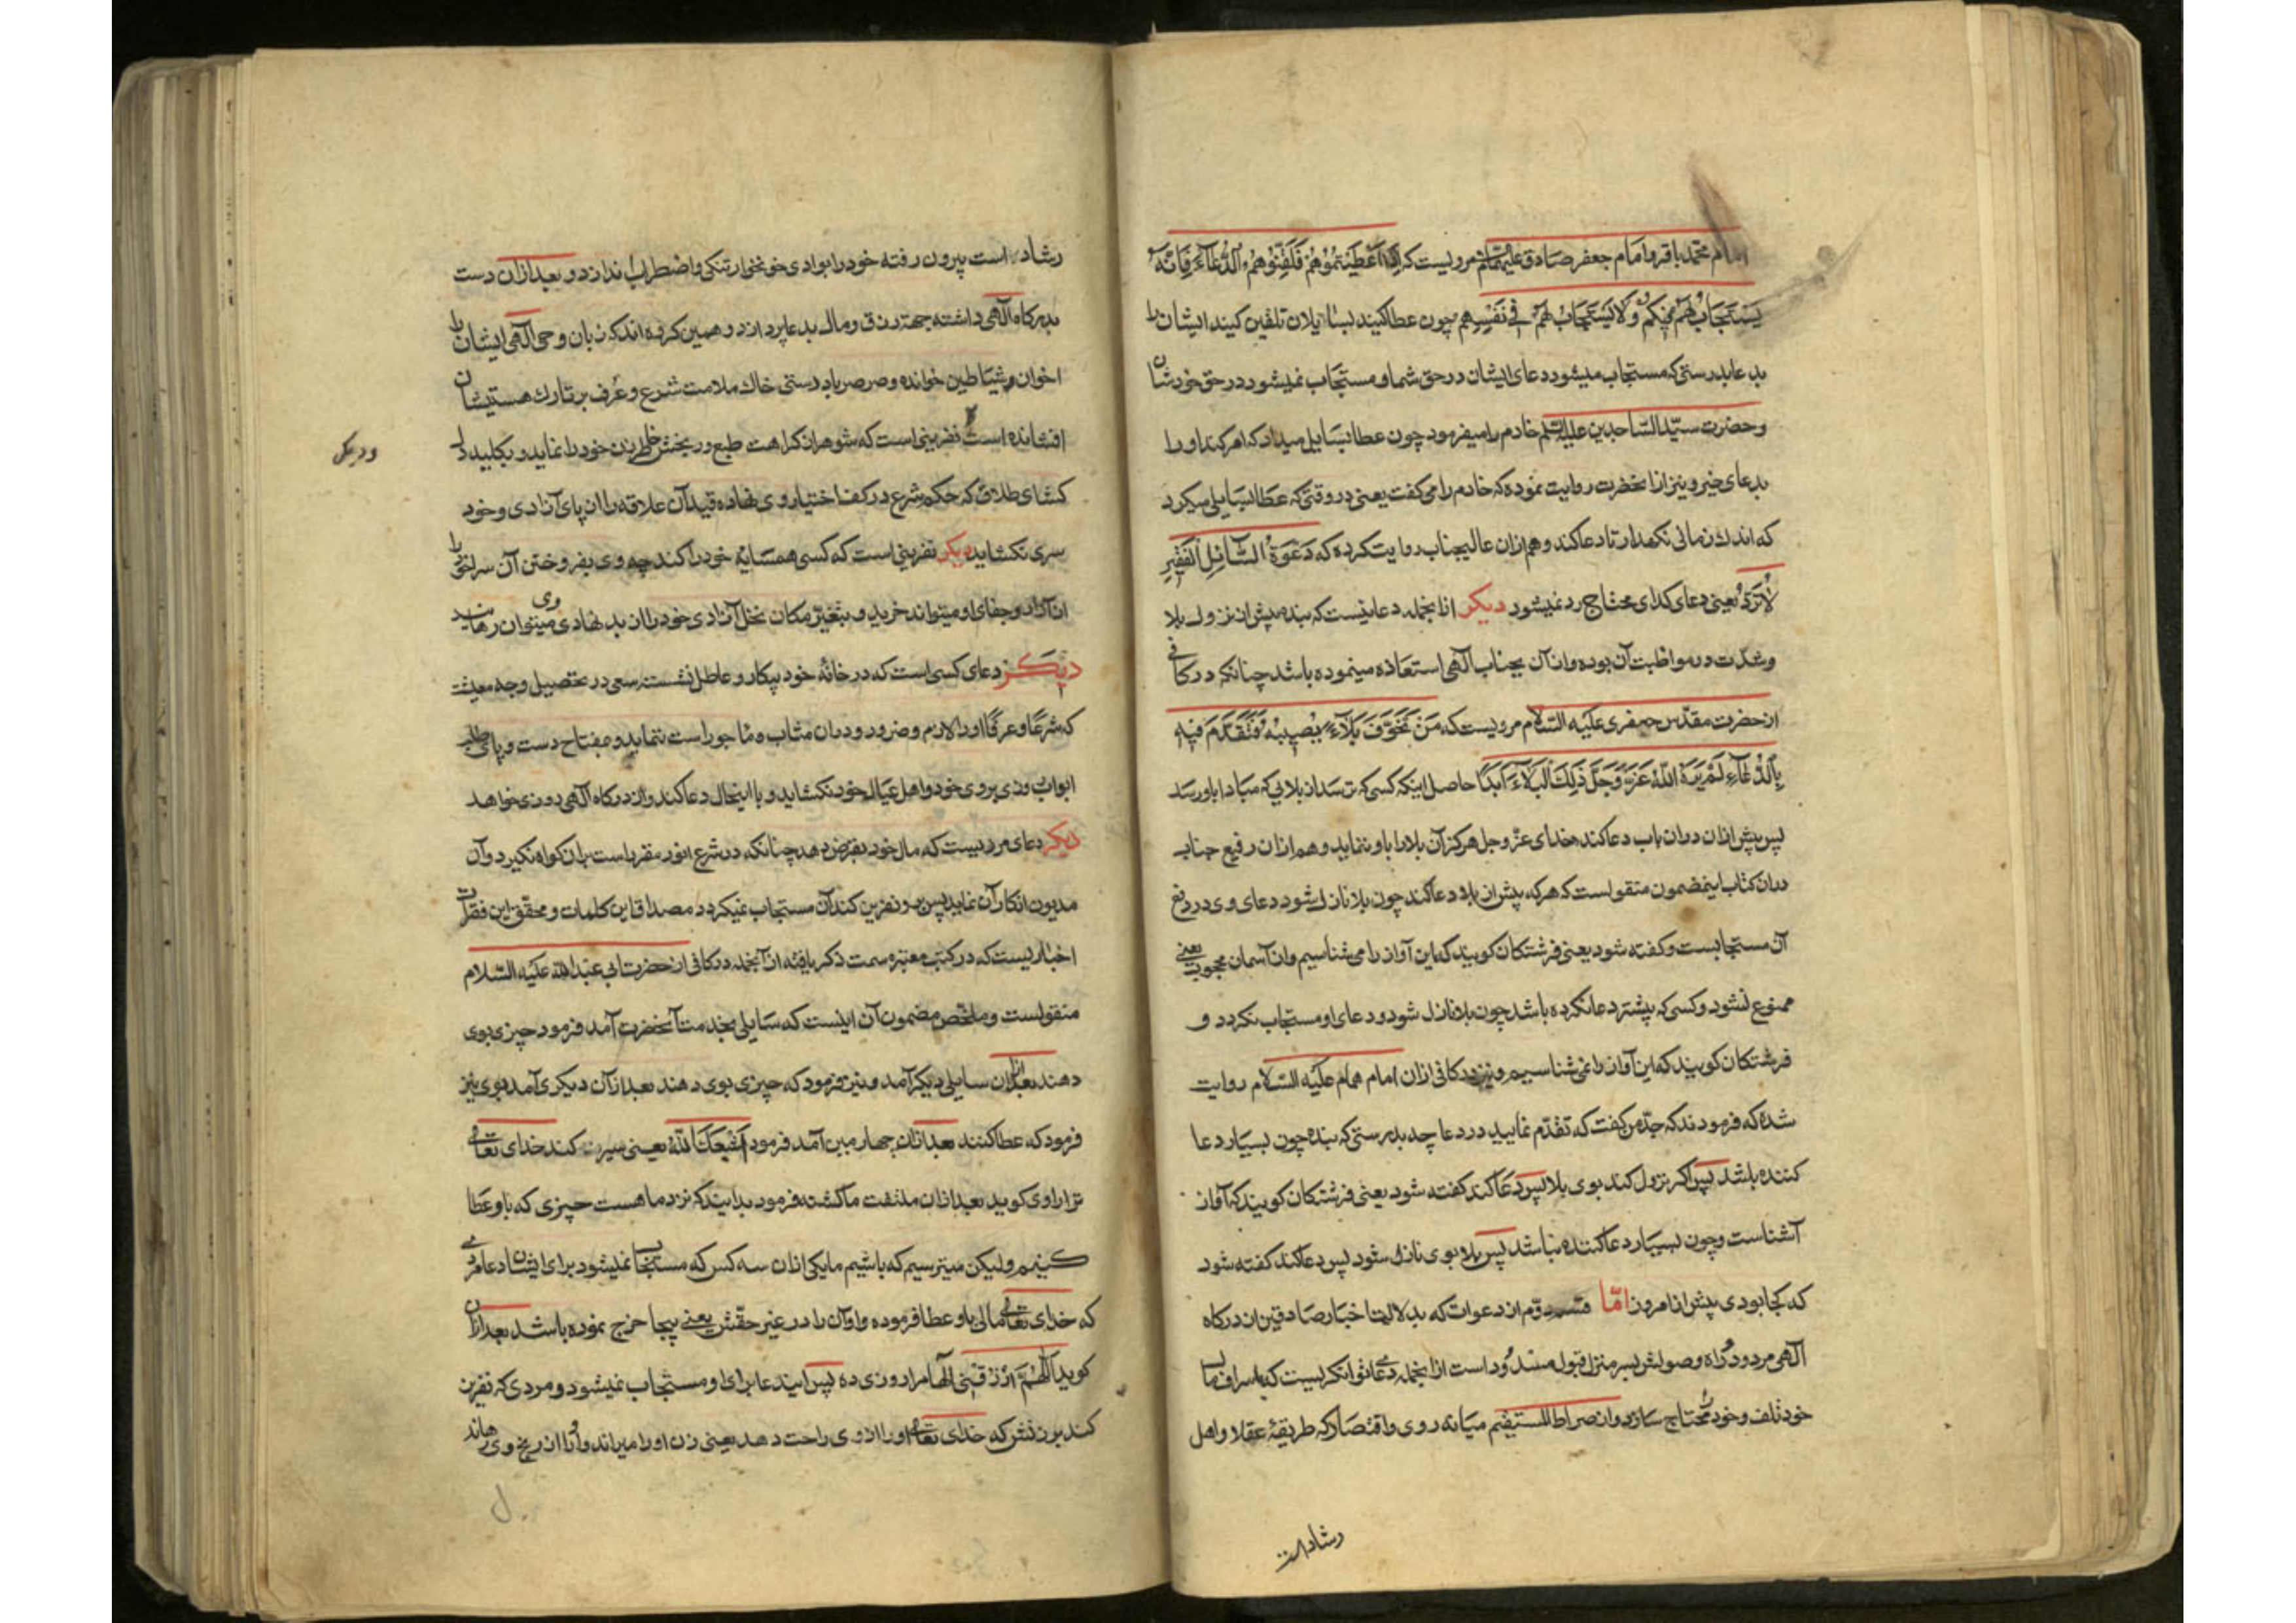 امام محمد باقر و امام جعفر صادق علیهما السلم مرویست که اذا اَعْطَیْتُمُوْهُمْ فَلَقِّنُوْهُمُ الدُّعَآءَ فَاِنَّهُ
یُسْتَجَابُ لَهُمْ فِیْکُمْ وَلَا یُسْتَجَابُ لَهُمْ فِیْ نَفْسِهِم چون عطا کنید بسایلان تلقین کنید ایشان را
بدعا بدرستی که مستجاب میشود دعای ایشان در حق شما و مستجاب نمیشود در حق خودشان
وحضرت سیّد السّاجدین علیه السّلم خادم را میفرمود چون عطا بسایل میداد که امر کند او را
بدعای خیر و نیز از انحضرت روایت نموده که خادم را می گفت یعنی در وقتی که عطا بسایلی میکرد
که اندك زمانی نکهدار تا دعا کند و هم ازان عالیجناب روایت کرده که دَعْوَةُ السَّآئِلِ الْفَقِیْرِ
لَاتُرَدُّ یعنی دعای کدای محتاج رد نمیشود دیکر ازانجمله دعائیست که بنده پیش از نزول بلا
وشدّت در مواظبت آن بوده و ازان بجناب آلهی استعاذه مینموده باشد چنانکه در کافی
از حضرت مقدّس جعفری علیه السّلام مرویست که مَنْ تَخَوَّفَ بَلَآءً یُصِیْبُهُ فَتَقَدَّمَ فِیْهِ
بِالدُّعَآءِ لَمْ یُرِهِ اللّٰهُ عَزَّ وَجَلَّ ذٰلِكَ الْبَلَآءَ اَبَدًا حاصل اینکه کسی که ترسد از بلایی که مبادا باو رسد
پس پیش ازان دران باب دعا کند خدای عزّ وجل هرکز آن بلا را باو ننماید و هم ازان رفیع جناب
دران کتاب اینمضمون منقولست که هرکه پیش از بلا دعا کند چون بلا نازل شود دعای وی در رفع
آن مستجابست و کفته شود یعنی فرشتکان کویند که این آواز را می شناسیم و از آسمان محجوب یعنی
ممنوع نشود و کسی که پیشتر دعا نکرده باشد چون بلا نازل شود دعای او مستجاب نکردد و
فرشتکان کویند که این آواز را نمی شناسیم و نیز در کافی ازان امام همام علیه السّلام روایت
شده که فرمودند که جدّ من کفت که تقدّم نمایید در دعا چه بدرستی که بنده چون بسیار دعا
کننده باشد پس اکر نزول کند بوی بلا پس دعا کند کفته شود یعنی فرشتکان کویند که آواز
آشناست و چون بسیار دعا کننده نباشد پس بلا بوی نازل شود پس دعا کند کفته شود
که کجا بودی پیش از امروز امّا قسم دوّم از دعوات که بدلالت اخبار صادقین از درکاه
آلهی مردود و راه وصولش بسر منزل قبول مسدود است ازانجمله دعای توانکریست که باسراف مال
خود تلف و خود را محتاج سازد و از صراط المستقیم میانه روی و اقتصاد که طریقهٔ عقلا و اهل
رشاد است
رشاد است بیرون رفته خود را بوادی خونخوار تنکی و اضطراب اندازد و بعد ازان دست
بدرکاه آلهی داشته جهة رزق و مال بدعا پردازد و همین کروه اند که زبان وحی آلهی ایشان را
اخوان شیاطین خوانده و صرصر باد دستی خاك ملامت شرع و عرف بر تارك هستیشان
افشانده است نفرینی است که شوهر از کراهت طبع و رنجش خاطر زن خود را نماید و بکلید
ودیکر
کشای طلاق که حکم شرع در کف اختیار وی نهاده قید آن علاقه را از پای آزادی و خود
سری نکشاید دیکر نفرینی است که کسی همسایهٔ خود را کند چه وی بفروختن آن سرا خود را
از آزار و جفای او میتواند خرید و بتغییر مکان نخل آزادی خود را از بد نهادی وی میتوان رهانید
دیکر دعای کسی است که در خانهٔ خود بیکار و عاطل نشسته سعی در تحصیل وجه معیشت
که شرعًا و عرفًا او را لازم و ضرور و دران مثاب و مأجور است ننماید و مفتاح دست و پای طلب
ابواب روزی بروی خود و اهل عیال خود نکشاید و با اینحال دعا کند و از درکاه آلهی روزی خواهد
دیکر دعای مردیست که مال خود بقرض دهد چنانکه در شرع انور مقرر است بران کواه نکیرد و آن
مدیون انکار آن نماید پس برو نفرین کند آن مستجاب نمیکردد مصداق این کلمات و محقّق این فقرات
اخباریست که در کتب معتبره سمت ذکر یافته ازانجمله در کافی از حضرت ابی عبد الله علیه السّلام
منقولست و ملخّص مضمون آن اینست که سایلی بخدمت آنحضرت آمد فرمود چیزی بوی
دهند بعد ازان سایلی دیکر آمد و نیز فرمود که چیزی بوی دهند بعد ازان دیکری آمد بوی نیز
فرمود که عطا کنند بعد ازان چهارمین آمد فرمود اَشْبَعَكَ اللّٰهُ یعنی سیر کند خدای تعالی
ترا راوی کوید بعد ازان ملتفت ما کشته فرمود بدانید که نزد ما هست چیزی که باو عطا
کنیم ولیکن میترسیم که باشیم ما یکی ازان سه کس که مستجاب نمیشود برای ایشان دعا مردی
که خدای تعالی مالی باو عطا فرموده و او آن را در غیر حقّش یعنی بیجا خرج نموده باشد بعد ازان
کوید اَللّٰهُمَّ ارْزُقْنِیْ آلها مرا روزی ده پس ایندعا برای او مستجاب نمیشود و مردی که نفرین
کند بر زنش که خدای تعالی او را از وی راحت دهد یعنی زن او را میراند و او را از رنج وی رهاند